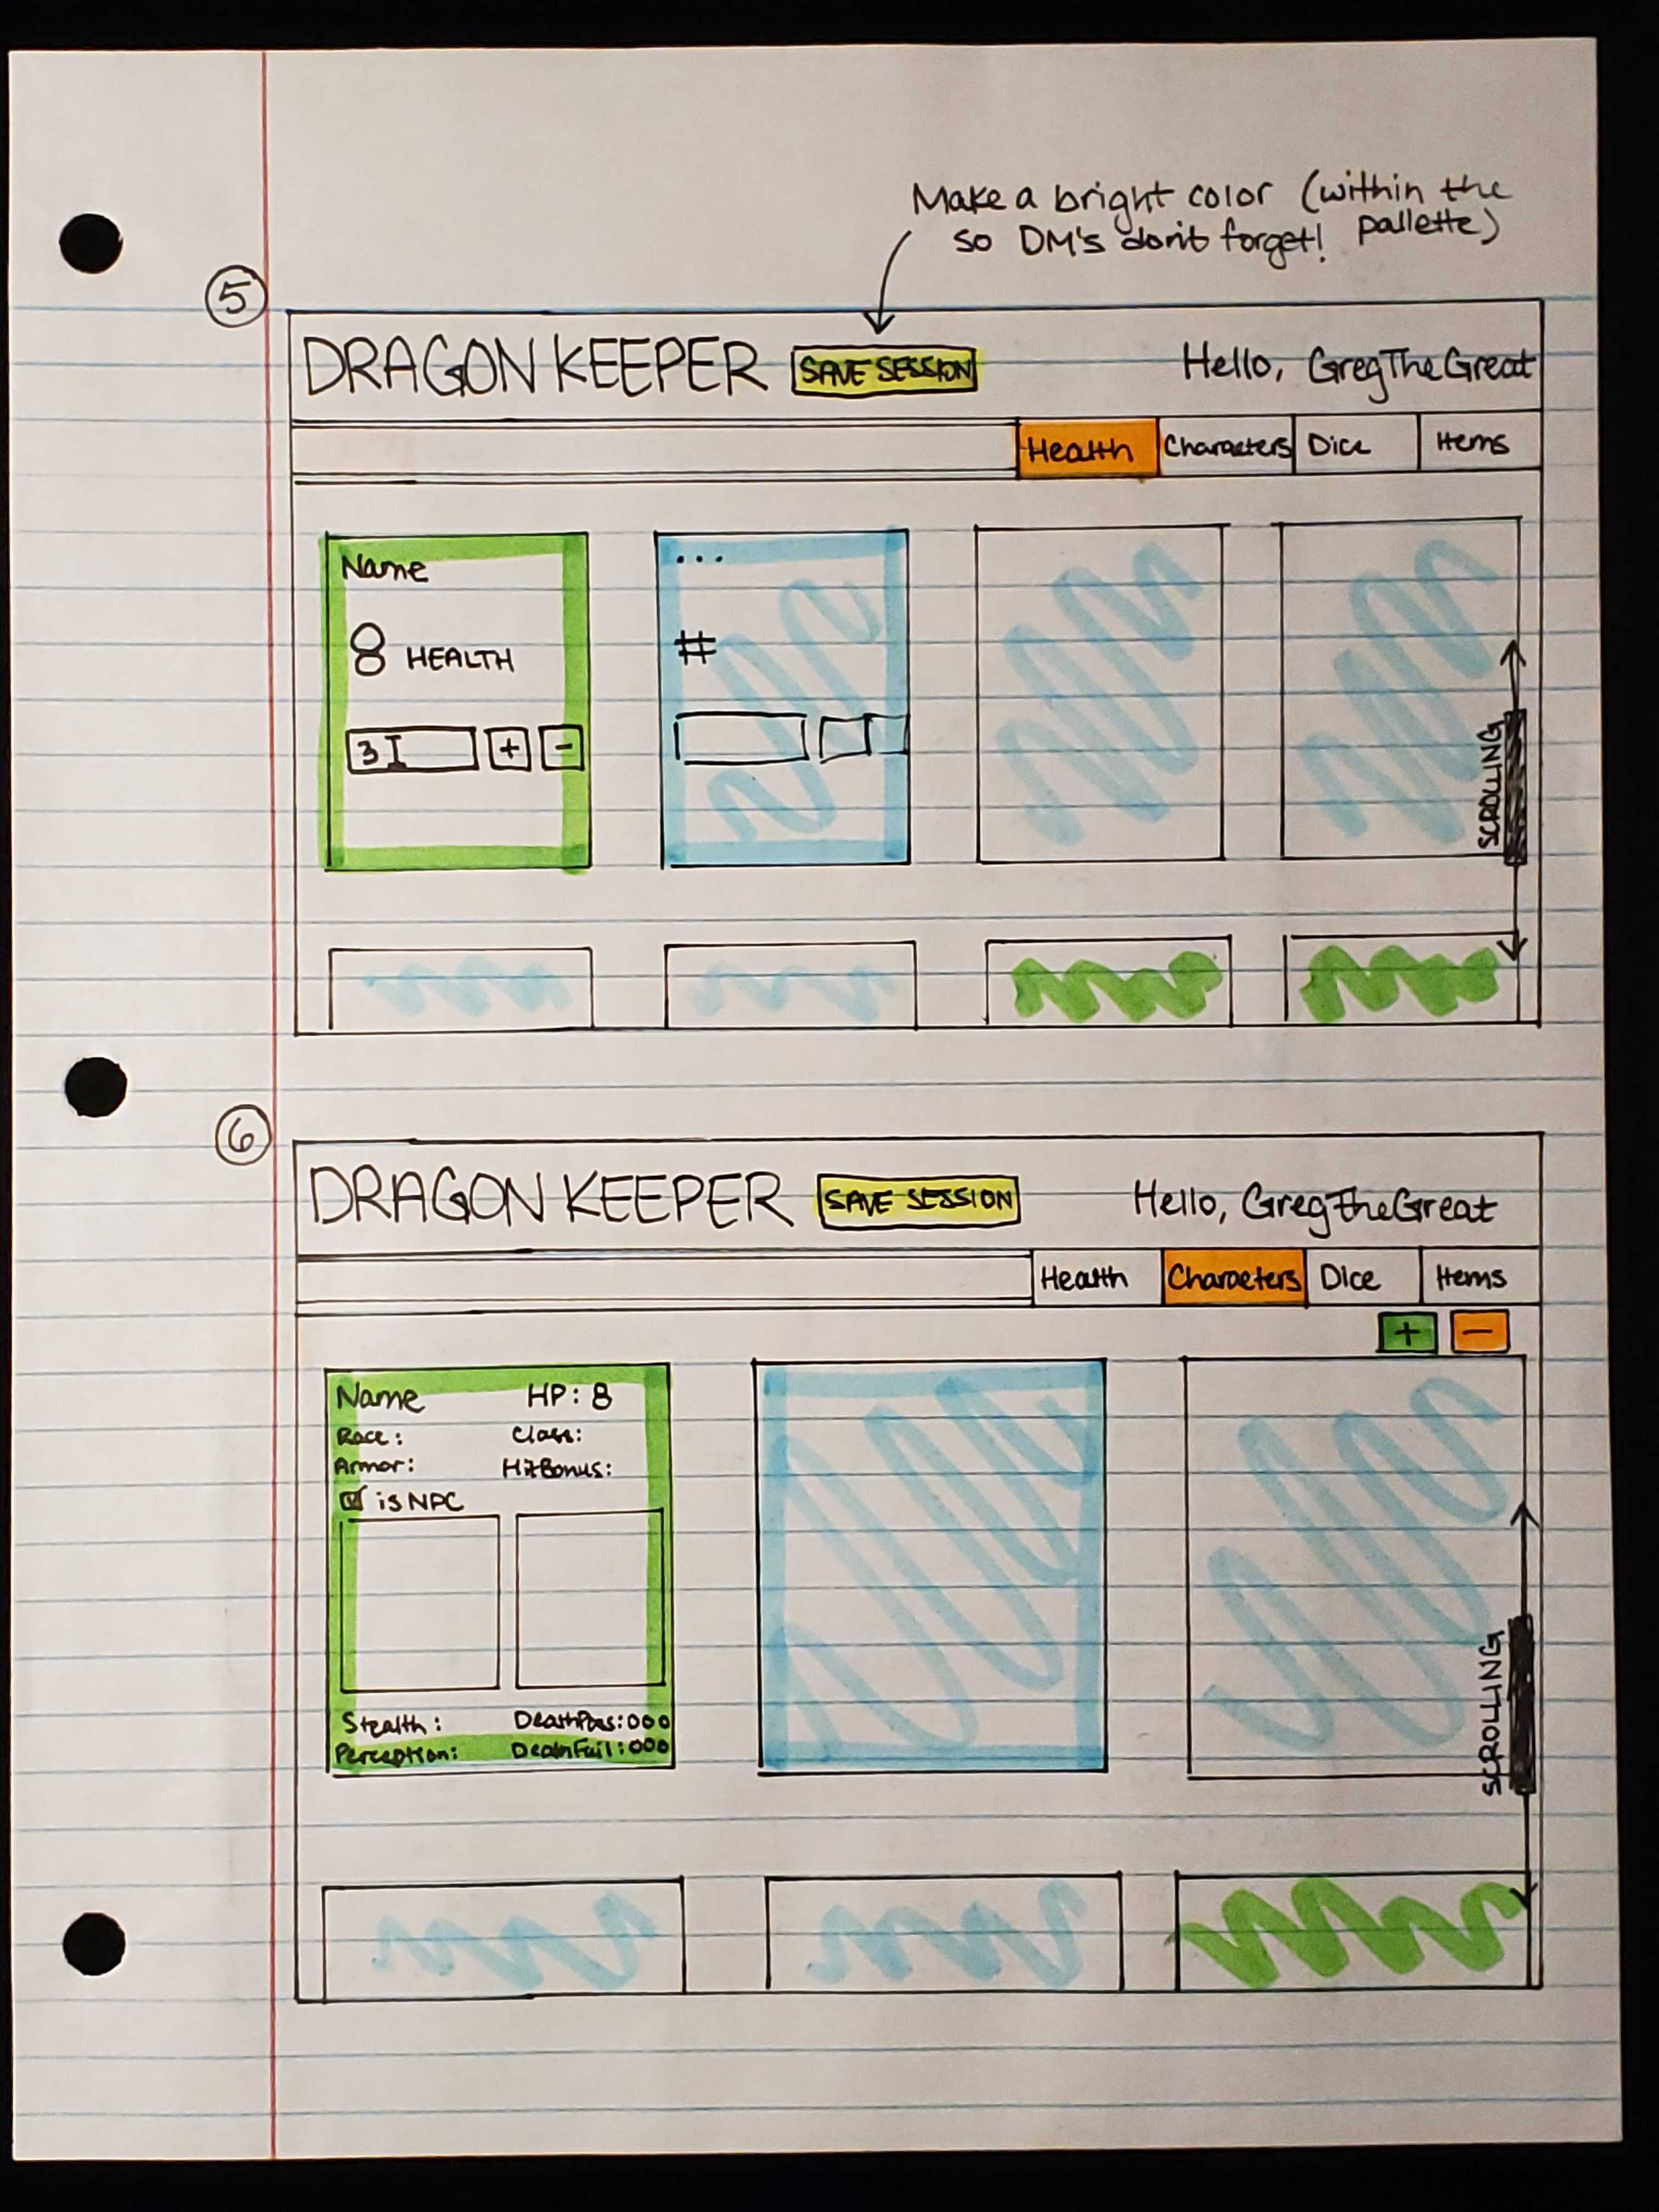 Make a bright color (within the
so DM's don't forget! pallette)
5
DRAGON KEEPER SAVE SESSION Hello, GregTheGreat
Health Characters Dice Items
Name ...
8 HEALTH #
3 + -
SCROLLING
6
DRAGON KEEPER SAVE SESSION Hello, GregTheGreat
Health Characters Dice Items
+ -
Name HP: 8
Race: Class:
Armor: HitBonus:
is NPC
Stealth: DeathPass: 000
Perception: DeathFail: 000
SCROLLING